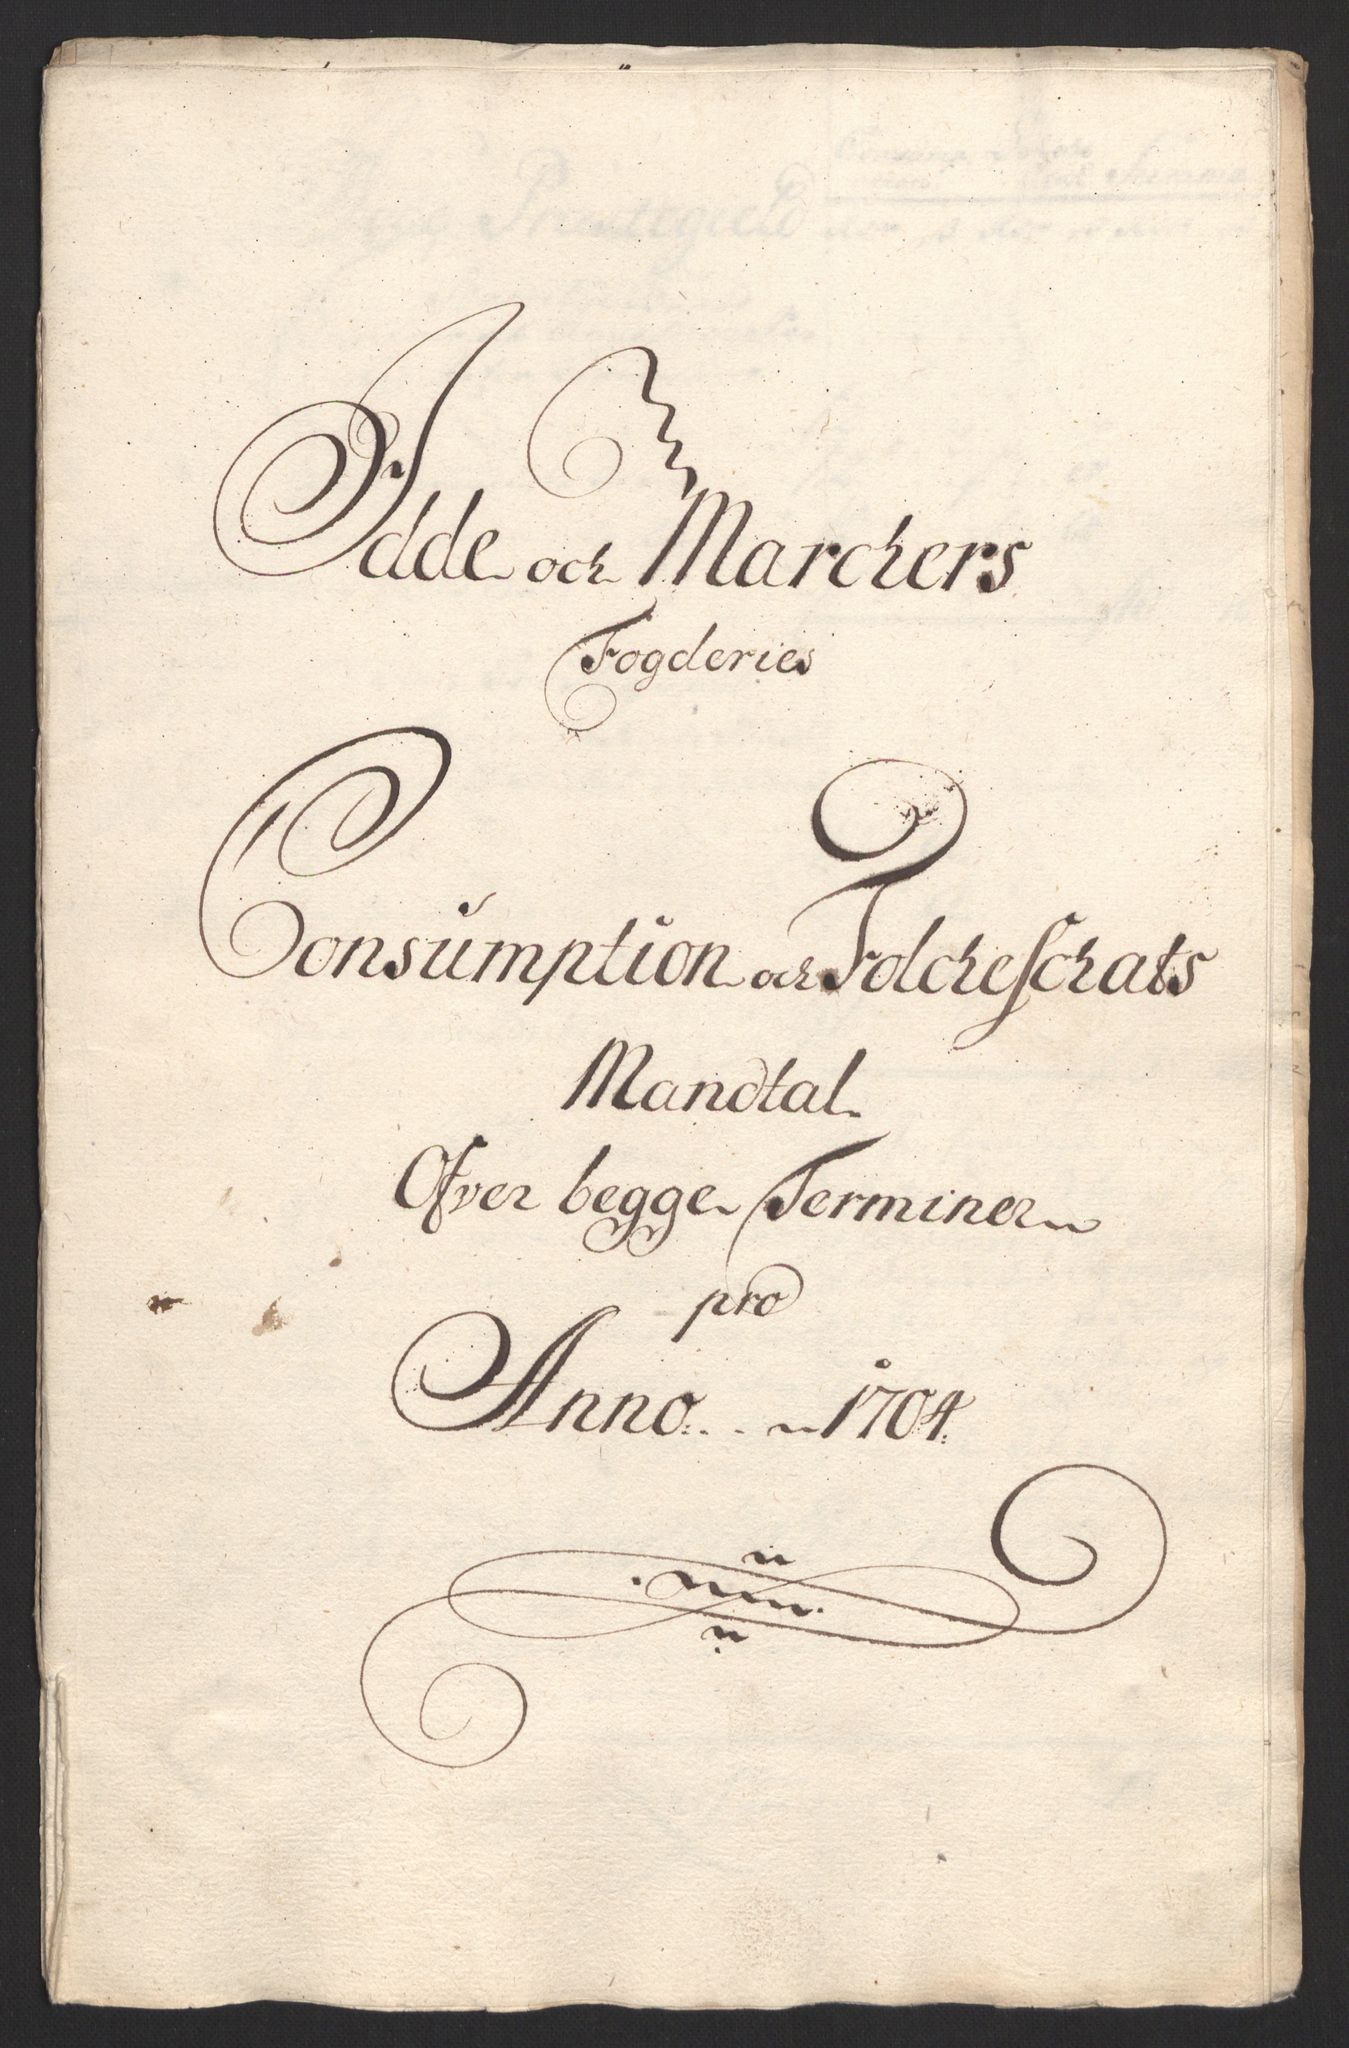 Idde och Marckers
Fogderies
Consumption och Folckeschats
Mandtal
Ofver begge Terminer
pro
Anno 1704.